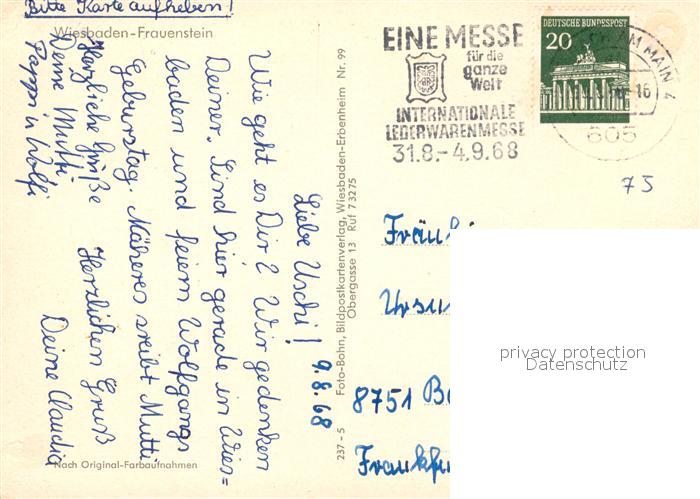 Bitte Karte aufheben!
Wiesbaden-Frauenstein
9.8.68
Liebe Uschi!
Wie geht es Dir? Wir gedenken
Deiner. Sind hier gerade in Wies=
baden und feiern Wolfgangs
Geburtstag. Näheres sreibt Mutti
Herzlichen Gruß
Deine Claudia
Herzliche Grüße
Deine Mutti
Pappi u Wolfi
Nach Original-Farbaufnahmen
237-5 Foto-Bohn, Bildpostkartenverlag, Wiesbaden-Erbenheim Nr. 99
Obergasse 13 Ruf 73275
EINE MESSE
für die
ganze
Welt
INTERNATIONALE
LEDERWARENMESSE
31.8.-4.9.68
DEUTSCHE BUNDESPOST
20
AM MAIN 4
16
605
75
Fräul
Ursu
8751 B
Frankfu
privacy protection
Datenschutz